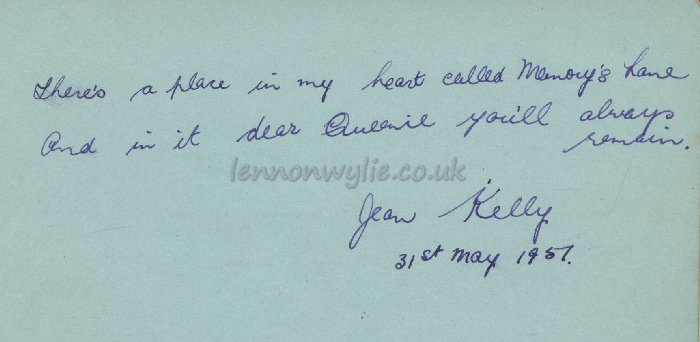 There's a place in my heart called Memory's Lane
And in it dear Queenie you'll always
remain.
lennonwylie.co.uk
Jean Kelly
31st May 1951.